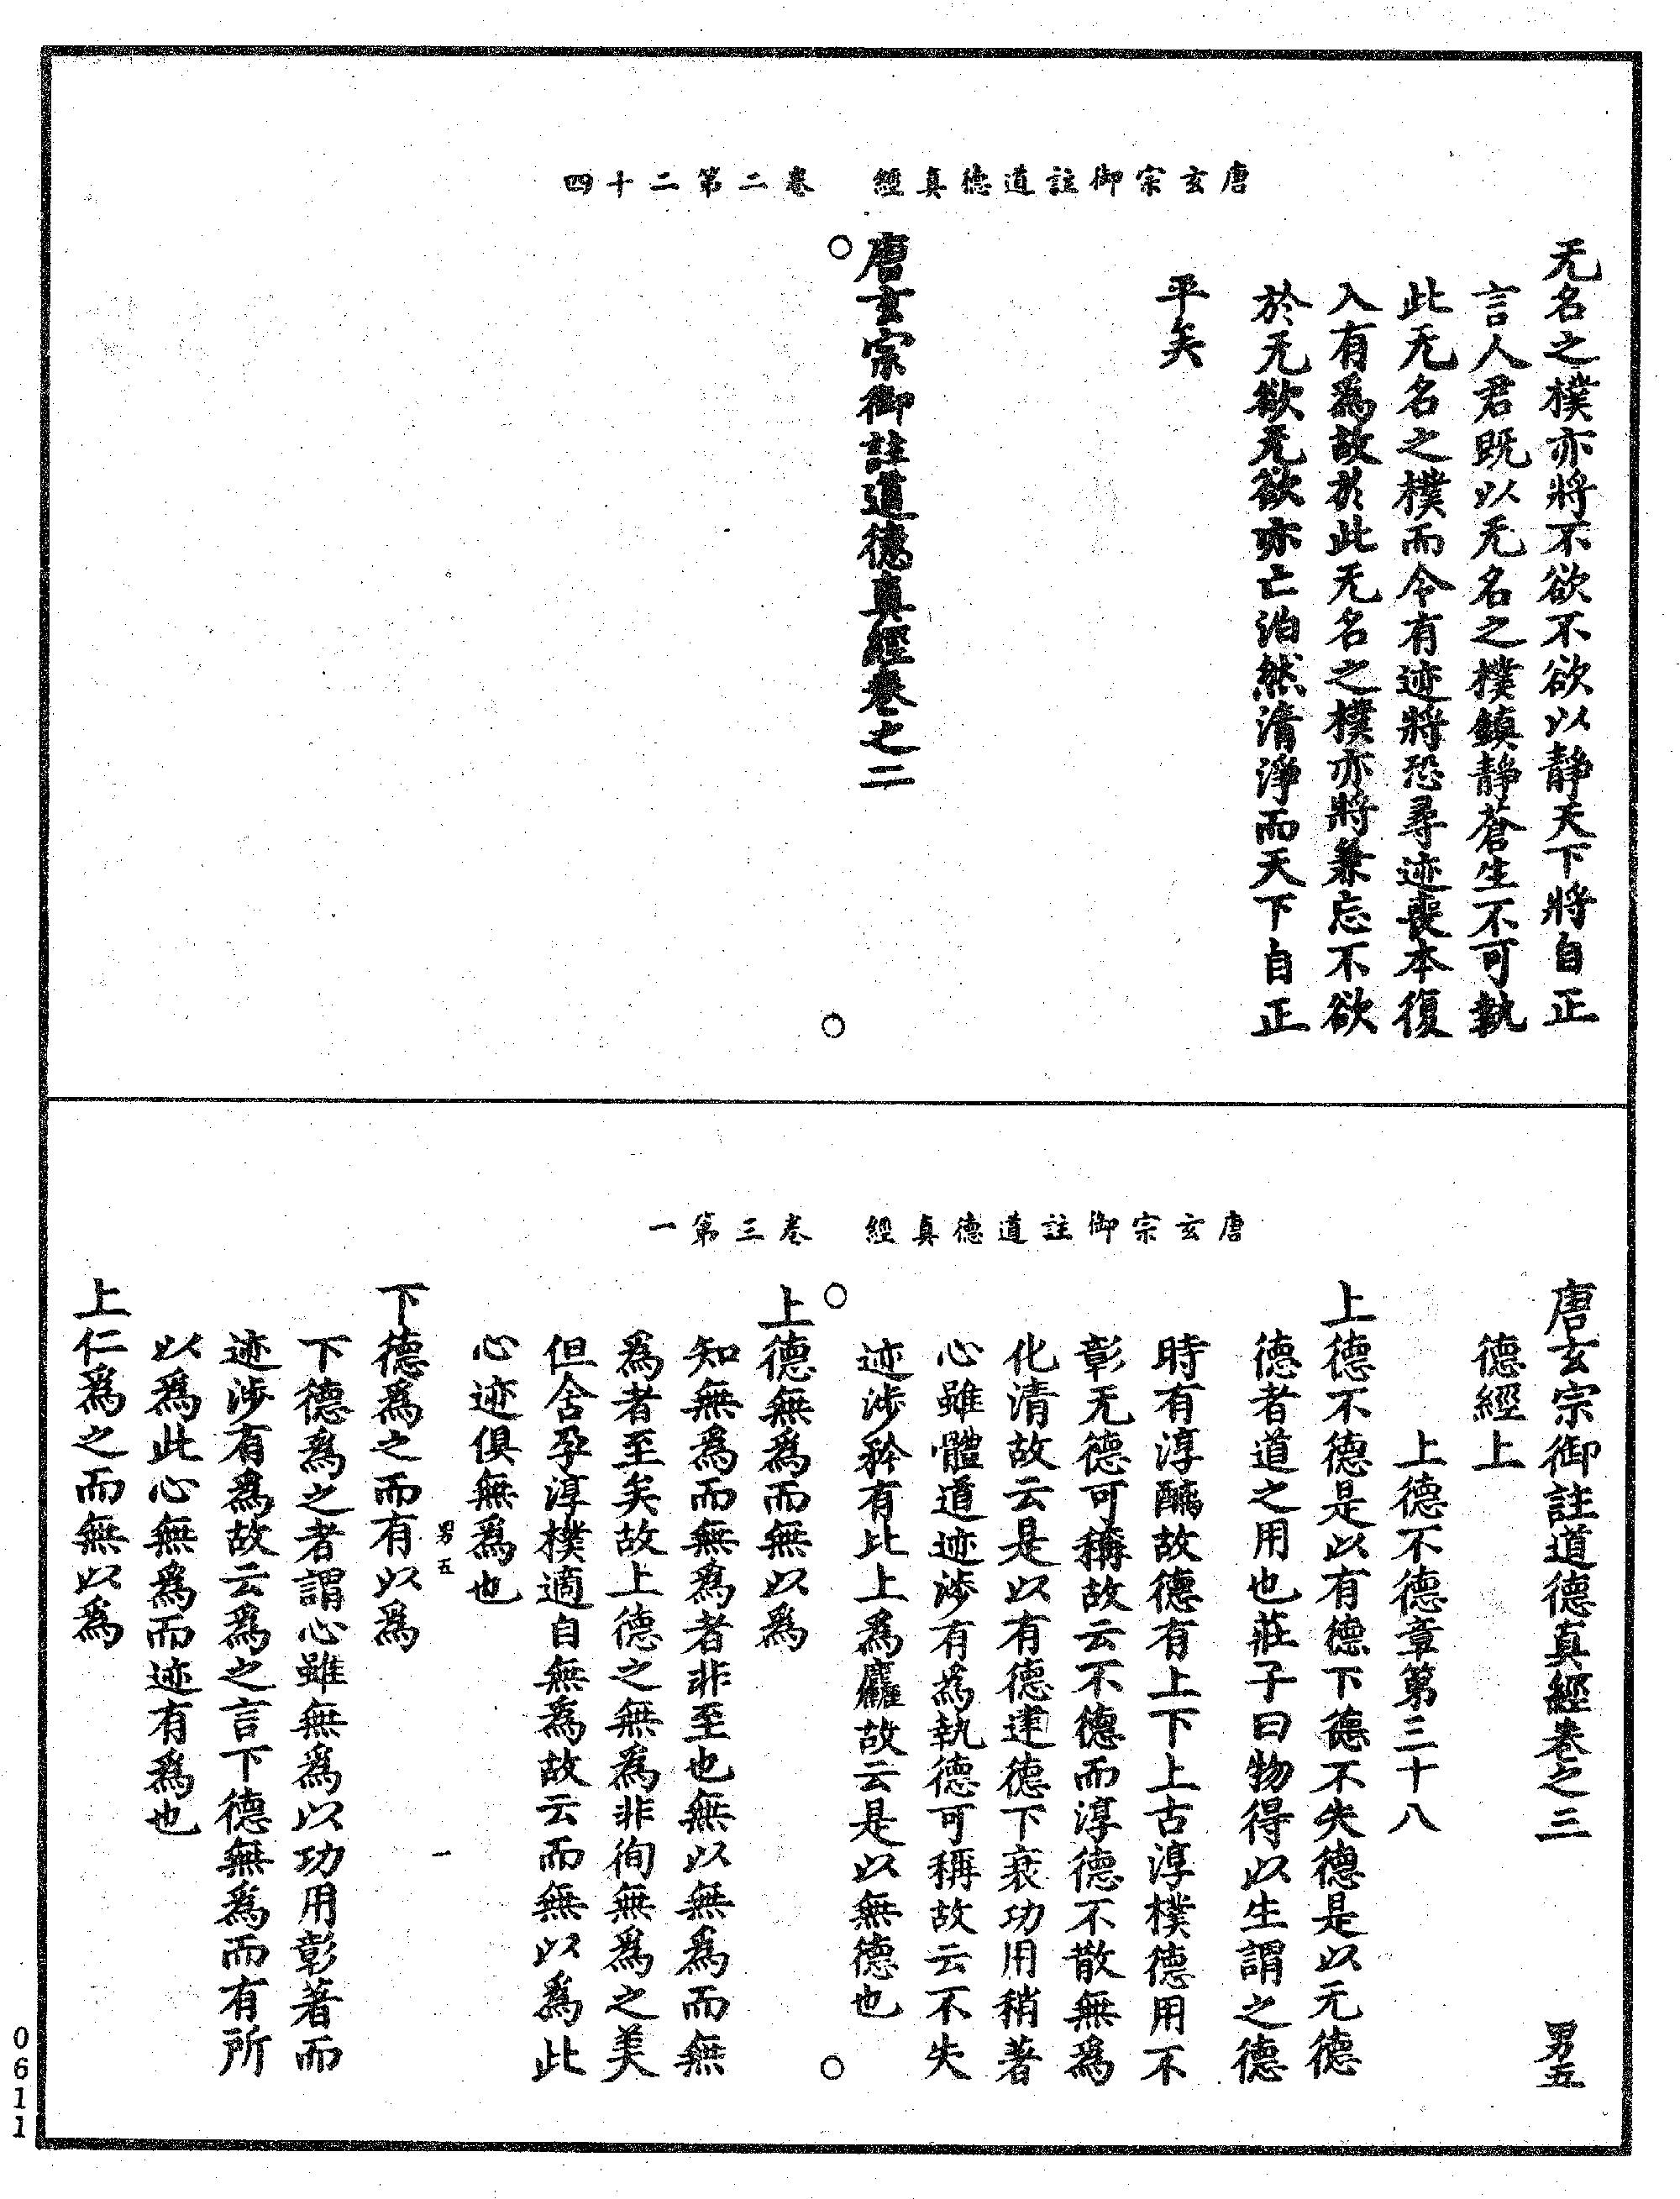 唐玄宗御註道德真經　卷二第二十四
无名之樸亦將不欲不欲以靜天下將自正
言人君既以无名之樸鎮靜蒼生不可執
此无名之樸而令有迹將恐尋迹喪本復
入有爲故於此无名之樸亦將兼忘不欲
於无欲无欲亦亡泊然清淨而天下自正
平矣
唐玄宗御註道德真經卷之二
唐玄宗御註道德真經　卷三第一
唐玄宗御註道德真經卷之三　男五
德經上
上德不德章第三十八
上德不德是以有德下德不失德是以元德
德者道之用也莊子曰物得以生謂之德
時有淳醨故德有上下上古淳樸德用不
彰无德可稱故云不德而淳德不散無爲
化清故云是以有德逮德下衰功用稍著
心雖體道迹涉有爲執德可稱故云不失
迹涉矜有比上爲麤故云是以無德也
上德無爲而無以爲
知無爲而無爲者非至也無以無爲而無
爲者至矣故上德之無爲非徇無爲之美
但含孕淳樸適自無爲故云而無以爲此
心迹俱無爲也
男五　一
下德爲之而有以爲
下德爲之者謂心雖無爲以功用彰著而
迹涉有爲故云爲之言下德無爲而有所
以爲此心無爲而迹有爲也
上仁爲之而無以爲
0611